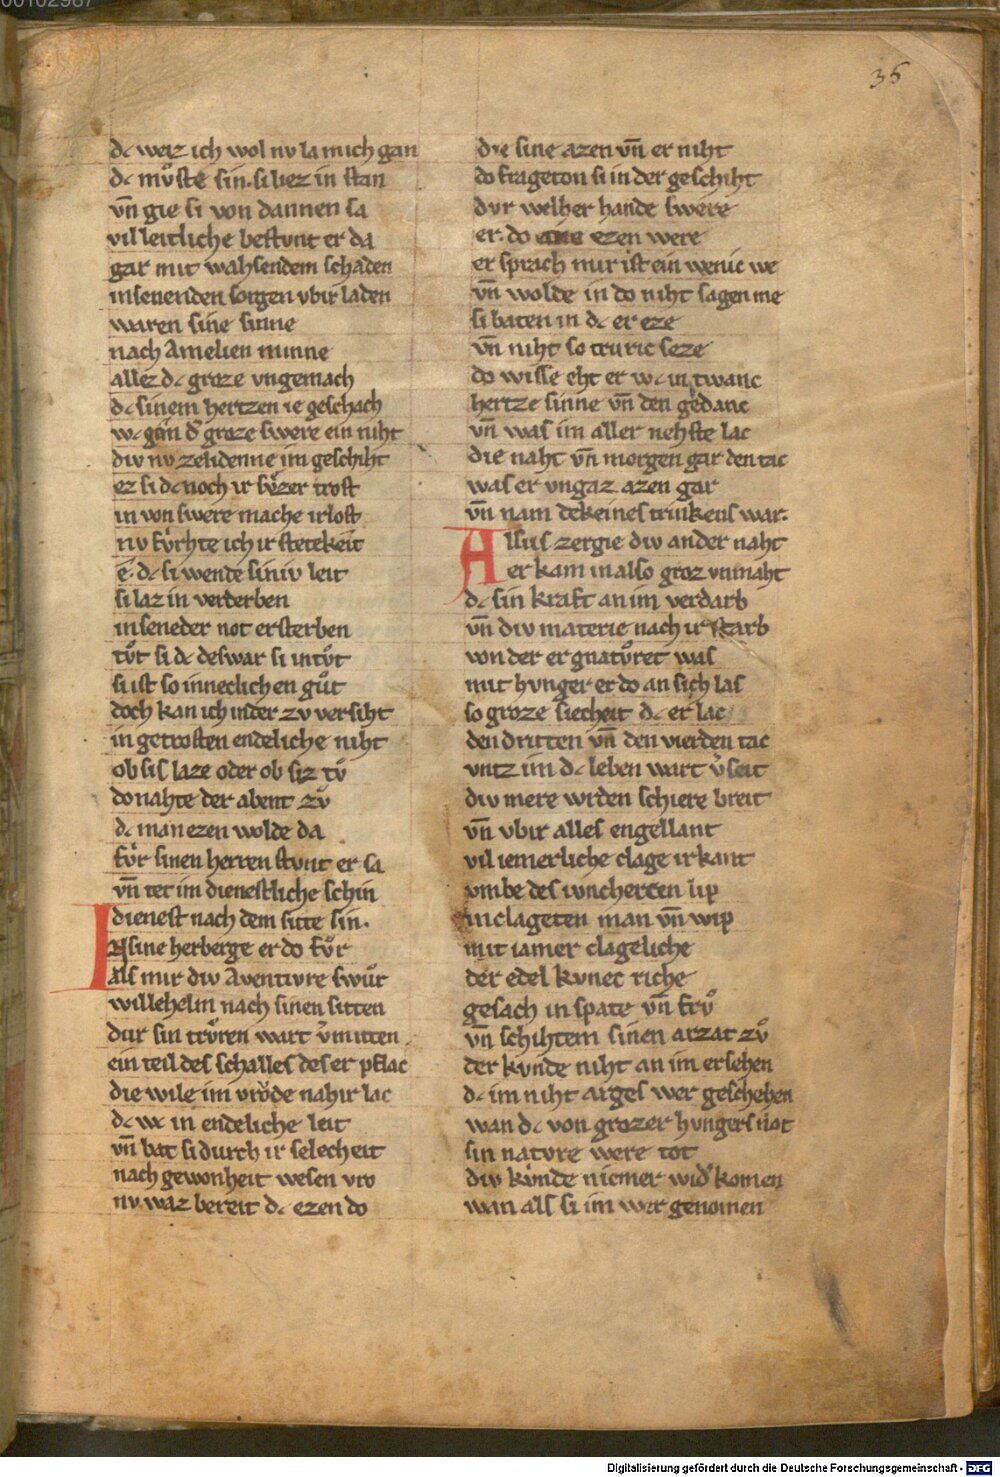 35
dc weiz ich wol nv la mich gan
dc mvͦste sin. si liez in stan
vn̄ gie si von dannen sa
vil leitliche bestvnt er da
gar mit wahsendem schaden
in senenden sorgen vbir laden
waren sine sinne
nach Amelien minne
allez dc groze vngemach
dc sinem hertzen ie geschach
wc gein dͤ groze swere ein niht
div nv zehdenne im geschiht
ez si dc noch ir svͤzer trost
in von swere mache irlost
nv fvͤrhte ich ir stetekeit
e. dc si wende siniv leit
si laz in verderben
in seneder not ersterben
tvͦt si dc deswar si intvͦt
si ist so inneclichen gvͦt
doch kan ich insder zv versiht
in getrosten endeliche niht
ob sis laze oder ob siz tvͦ
do nahte der abent zvͦ
dc man ezen wolde da
fvͤr sinen herren stvnt er sa
vn̄ tet im dienestliche schin
dienest nach dem sitte sin.
In sine herberge er do fvͦr
als mir div Aventivre swvͦr
willehelm nach sinen sitten
dur sin trvͦren wart v̄mitten
ein teil des schalles des er pflac
die wile im vrvͦde nahir lac
dc wc in endeliche leit
vn̄ bat si durch ir selecheit
nach gewonheit wesen vro
nv waz bereit dc ezen do
die sine azen vn̄ er niht
do frageton si in der geschiht
dvr welher hande swere
er. do ane ezen were
er sprach mir ist ein wenic we
vn̄ wolde in do niht sagen me
si baten in dc er eze
vn̄ niht so truric seze
do wisse eht er wc in twanc
hertze sinne vn̄ den gedanc
vn̄ was im aller nehste lac
die naht vn̄ morgen gar den tac
was er vngaz azen gar
vn̄ nam dekeines trinkens war.
Alsus zergie div ander naht
er kam in also groz vnmaht
dc sin kraft an im verdarb
vn̄ div materie nach ir starb
von der er gnatvͦret was
mit hvnger er do an sich las
so groze siecheit dc er lac
den dritten vn̄ den vierden tac
vntz im dc leben wart v̄seit
div mere wrden schiere breit
vn̄ vbir alles engellant
vil iemerliche clage irkant
vmbe des ivncherren lip
in clageten man vn̄ wip
mit iamer clageliche
der edel kvnec riche
gesach in spate vn̄ frvͦ
vn̄ schihtem sinen arzat zvͦ
der kvnde niht an im ersehen
dc im niht arges wer geschehen
wan dc von grozer hvngers not
sin natvre were tot
div kvͤnde niemer widͤ komen
wan als si im wer genomen
Digitalisierung gefördert durch die Deutsche Forschungsgemeinschaft - DFG